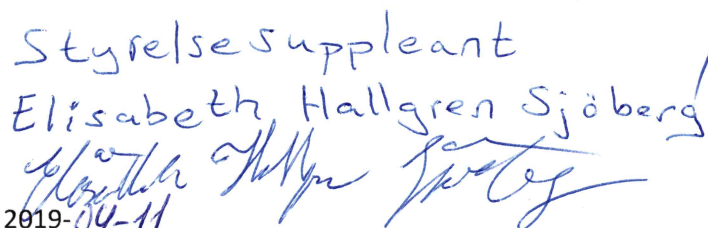 Styrelsesuppleant
Elisabeth Hallgren Sjöberg
Elisabeth Hallgren Sjöberg
2019-04-11